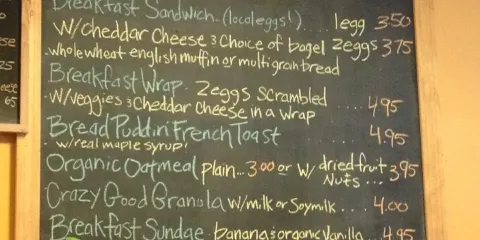 Breakfast Sandwich. (local eggs!).... 1egg 3.50
w/cheddar cheese & choice of bagel 2eggs 3.75
whole wheat english muffin or multigrain bread
Breakfast Wrap. 2eggs scrambled
w/veggies & cheddar cheese in a wrap .... 4.95
Bread Puddin' French Toast .... 4.95
w/real maple syrup!
Organic Oatmeal plain... 3.00 or w/ dried fruit 3.95
Nuts ...
Crazy Good Granola w/milk or soymilk ... 4.00
Breakfast Sundae. banana & organic vanilla 4.95
65